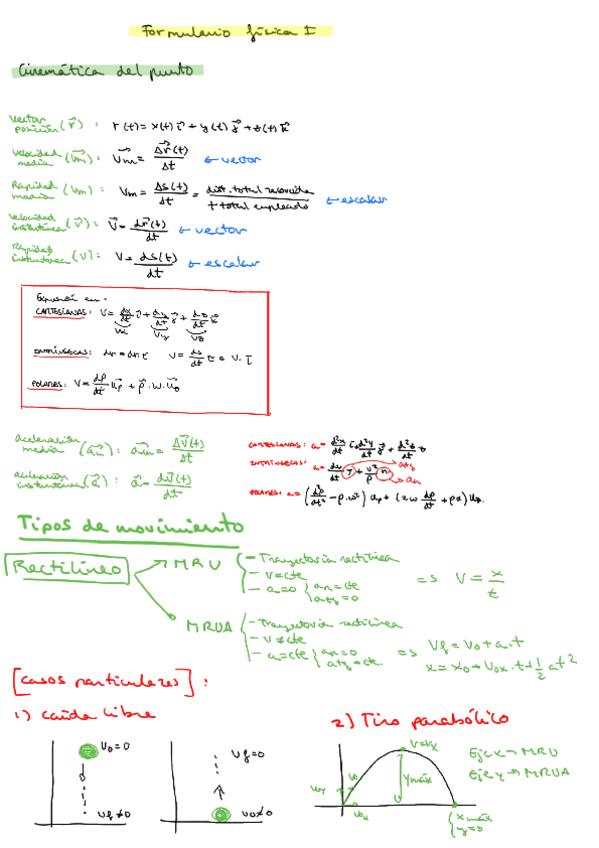 Formulario física I
Cinemática del punto
vector posición (r⃗) : r(t) = x(t) i⃗ + y(t) j⃗ + z(t) k⃗
velocidad media (v⃗m) : v⃗m = Δr⃗(t)/Δt ← vector
Rapidez media (vm) : vm = Δs(t)/Δt = dist. total recorrida / t total empleado ← escalar
velocidad instantánea (v⃗) : v⃗ = dr⃗(t)/dt ← vector
Rapidez instantánea (v) : v = ds(t)/dt ← escalar
Expresión en:
CARTESIANAS: v = dx/dt i⃗ + dy/dt j⃗ + dz/dt k⃗
vx vy vz
INTRÍNSECAS:
POLARES:
aceleración media (a⃗m) : a⃗m = Δv⃗(t)/Δt
aceleración instantánea (a⃗) : a⃗ = dv⃗(t)/dt
CARTESIANAS: a =
INTRÍNSECAS: a =
POLARES: a =
Tipos de movimiento
Rectilíneo
MRU
- Trayectoria rectilínea
- v = cte
- a = 0
an = cte
atg = 0
=> v = x/t
MRUA
- Trayectoria rectilínea
- v ≠ cte
- a = cte
an = 0
atg = cte
=> vf = v0 + a.t
x = x0 + v0x . t + 1/2 at²
[casos particulares] :
1) caída libre
v0 = 0
vf ≠ 0
vf = 0
v0 ≠ 0
2) Tiro parabólico
v = vx
ymáx
v0
v0y
v0x
x máx
y = 0
Eje x → MRU
Eje y → MRUA